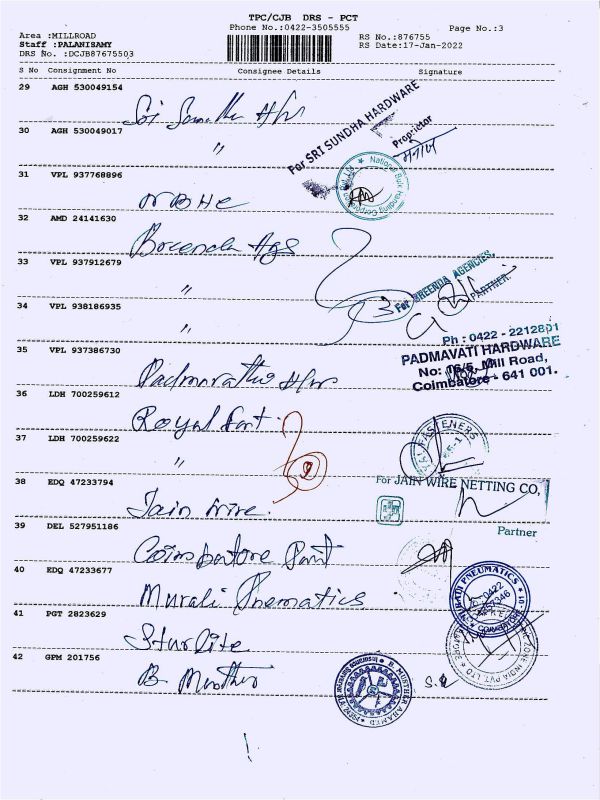 TPC/CJB DRS - PCT
Phone No.:0422-3505555 Page No.:3
Area :MILLROAD
RS No.:876755
Staff :PALANISAMY
RS Date:17-Jan-2022
DRS No. :DCJB87675503
S No Consignment No Consignee Details Signature
29 AGH 530049154
Sri
For SRI SUNDHA HARDWARE
Proprietor
30 AGH 530049017
"
31 VPL 937768896
NBHC
National Bulk Handling Corporation
32 AMD 24141630
Breenda Ags
33 VPL 937912679
"
For BREENDA AGENCIES,
PARTNER.
34 VPL 938186935
"
35 VPL 937386730
Padmavathi
Ph : 0422 - 2212801
PADMAVATI HARDWARE
No: 16/5, Mill Road,
Coimbatore - 641 001.
36 LDH 700259612
Royal
37 LDH 700259622
"
FASTENERS
38 EDQ 47233794
Jain wire.
For JAIN WIRE NETTING CO,
Partner
39 DEL 527951186
Coimbatore
40 EDQ 47233677
Murali Pnematics
PNEUMATICS
41 PGT 2823629
Sturlite
42 GPM 201756
B. Murther
B. MURTHER AHAMED